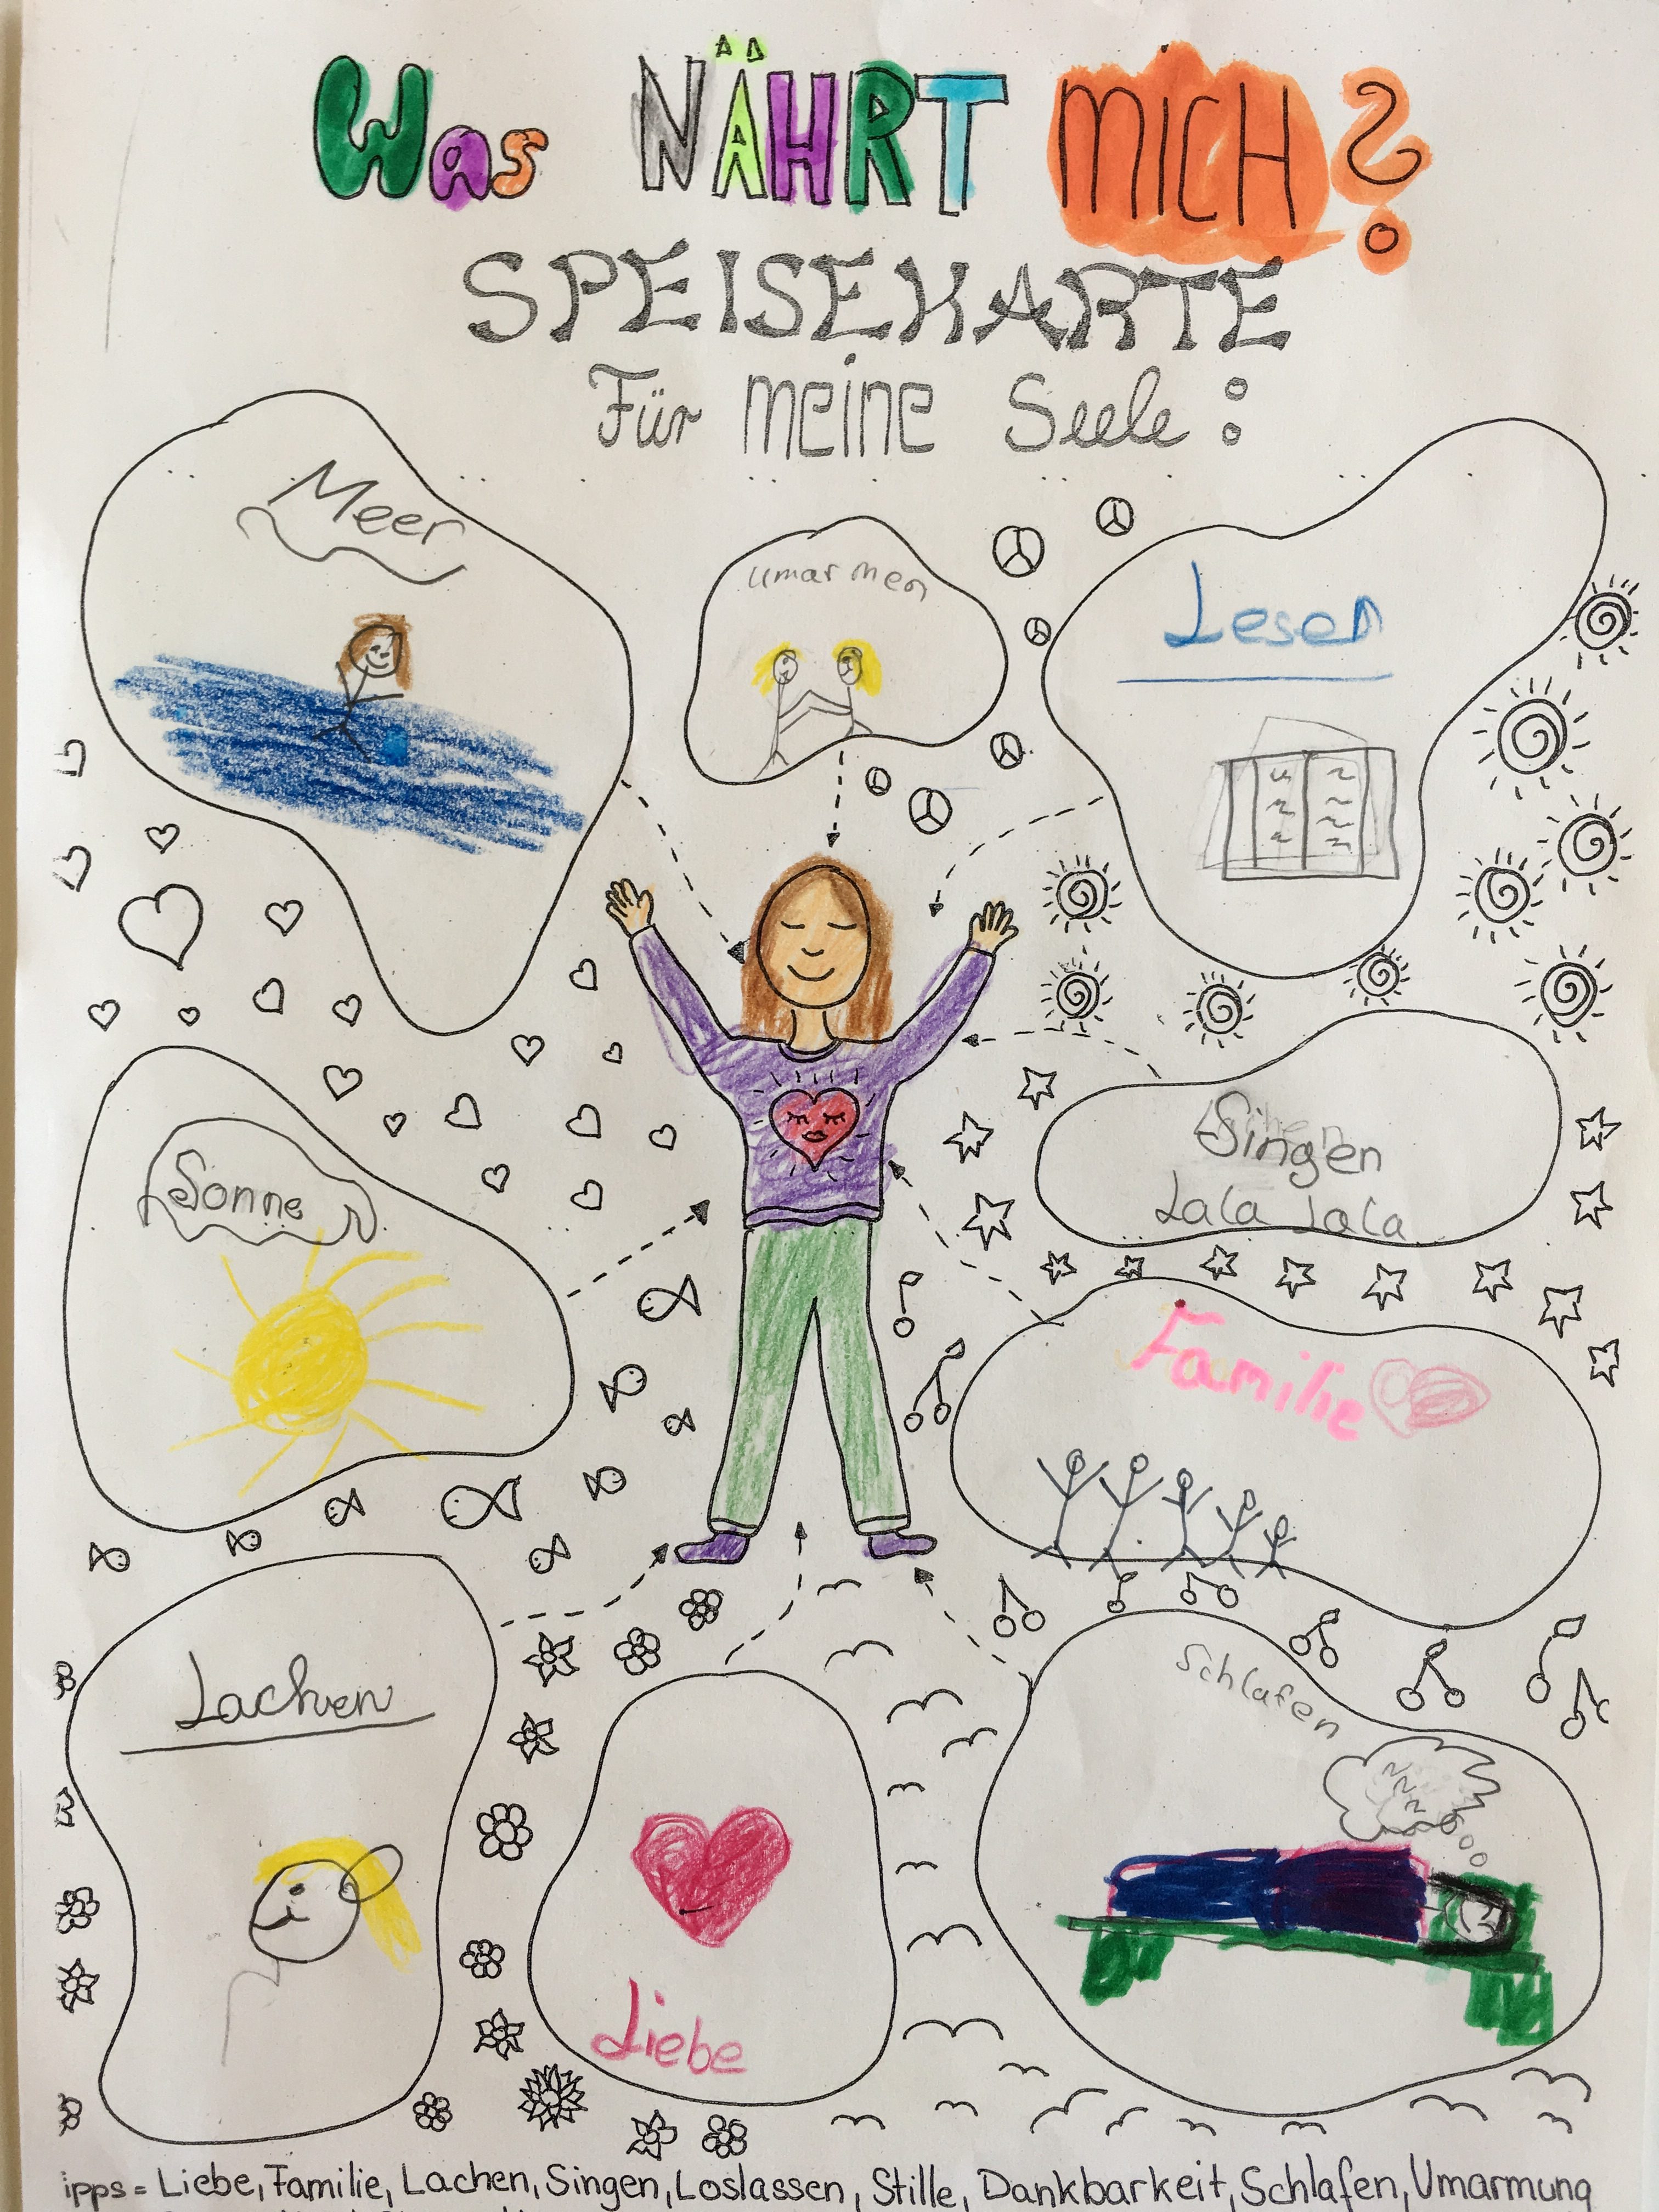 Was NÄHRT MICH?
SPEISEKARTE
Für meine Seele:
Meer
umarmen
Lesen
Sonne
Singen
LaLa LaLa
Familie
Lachen
Liebe
Schlafen
ipps = Liebe, Familie, Lachen, Singen, Loslassen, Stille, Dankbarkeit, Schlafen, Umarmung